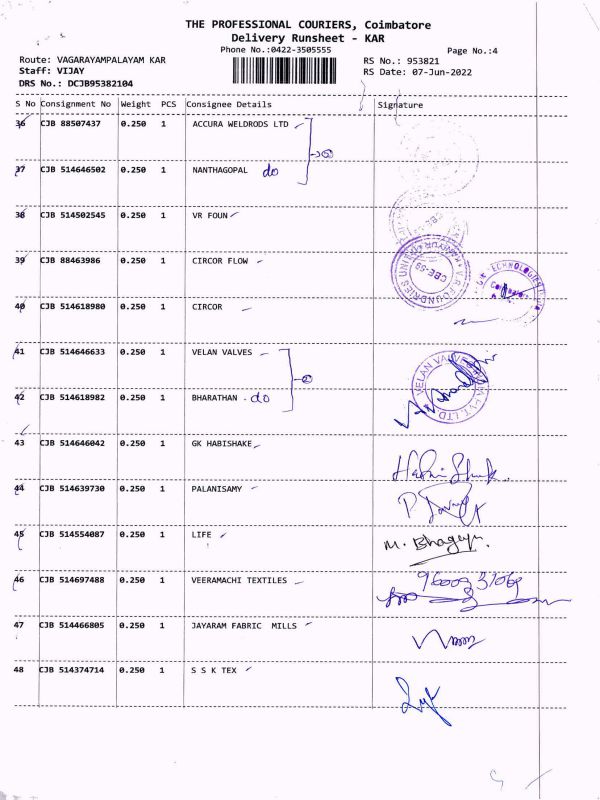 THE PROFESSIONAL COURIERS, Coimbatore
Delivery Runsheet - KAR
Phone No.:0422-3505555
Page No.:4
Route: VAGARAYAMPALAYAM KAR
RS No.: 953821
Staff: VIJAY
RS Date: 07-Jun-2022
DRS No.: DCJB95382104
S No Consignment No Weight PCS Consignee Details Signature
36 CJB 88507437 0.250 1 ACCURA WELDRODS LTD
37 CJB 514646502 0.250 1 NANTHAGOPAL do
38 CJB 514502545 0.250 1 VR FOUN
39 CJB 88463986 0.250 1 CIRCOR FLOW
40 CJB 514618980 0.250 1 CIRCOR
41 CJB 514646633 0.250 1 VELAN VALVES
42 CJB 514618982 0.250 1 BHARATHAN - do
43 CJB 514646042 0.250 1 GK HABISHAKE
44 CJB 514639730 0.250 1 PALANISAMY
45 CJB 514554087 0.250 1 LIFE M. Bhagya.
46 CJB 514697488 0.250 1 VEERAMACHI TEXTILES
47 CJB 514466805 0.250 1 JAYARAM FABRIC MILLS
48 CJB 514374714 0.250 1 S S K TEX